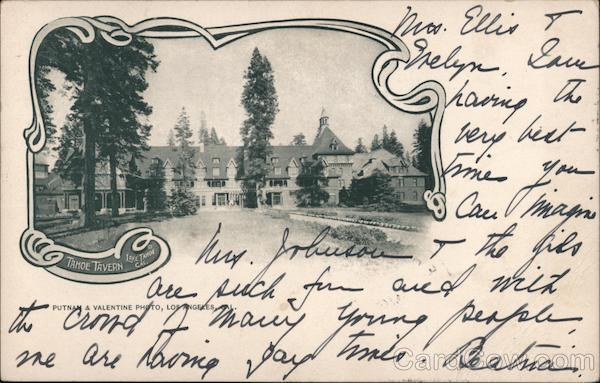 Mrs. Ellis &
Evelyn, I am
having the
very best
times you
can imagine
Mrs. Johnson & the girls
are such fun and with
the crowd of many young people,
we are having gay times.
TAHOE TAVERN
LAKE TAHOE
CAL.
PUTNAM & VALENTINE PHOTO, LOS ANGELES, CAL.
CardCow.com